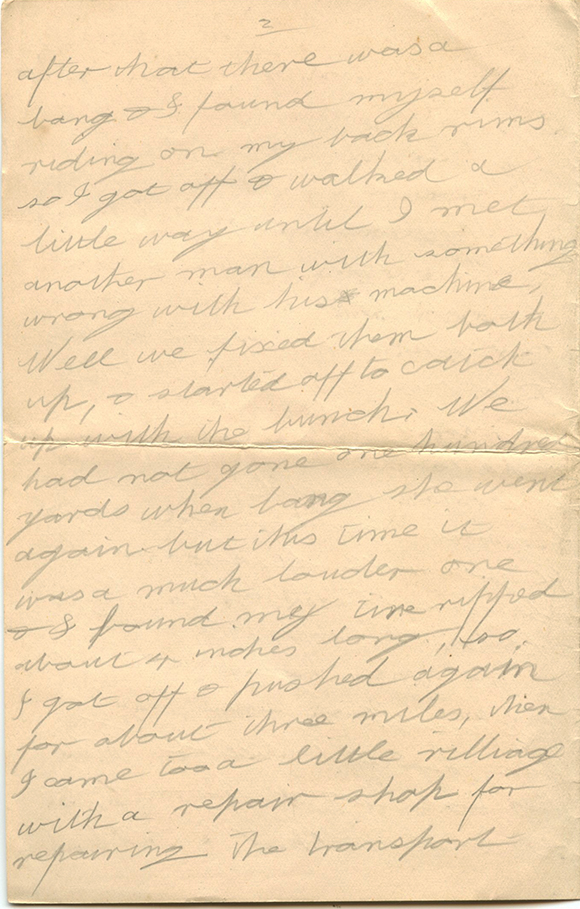 2
after that there was a
bang & I found myself
riding on my back rims
so I got off & walked a
little way until I met
another man with something
wrong with his machine,
Well we fixed them both
up, & started off to catch
up with the bunch. We
had not gone one hundred
yards when bang she went
again but this time it
was a much louder one
& I found my tire ripped
about 4 inches long, so
I got off & pushed again
for about three miles, then
I came to a little village
with a repair shop for
repairing the transport